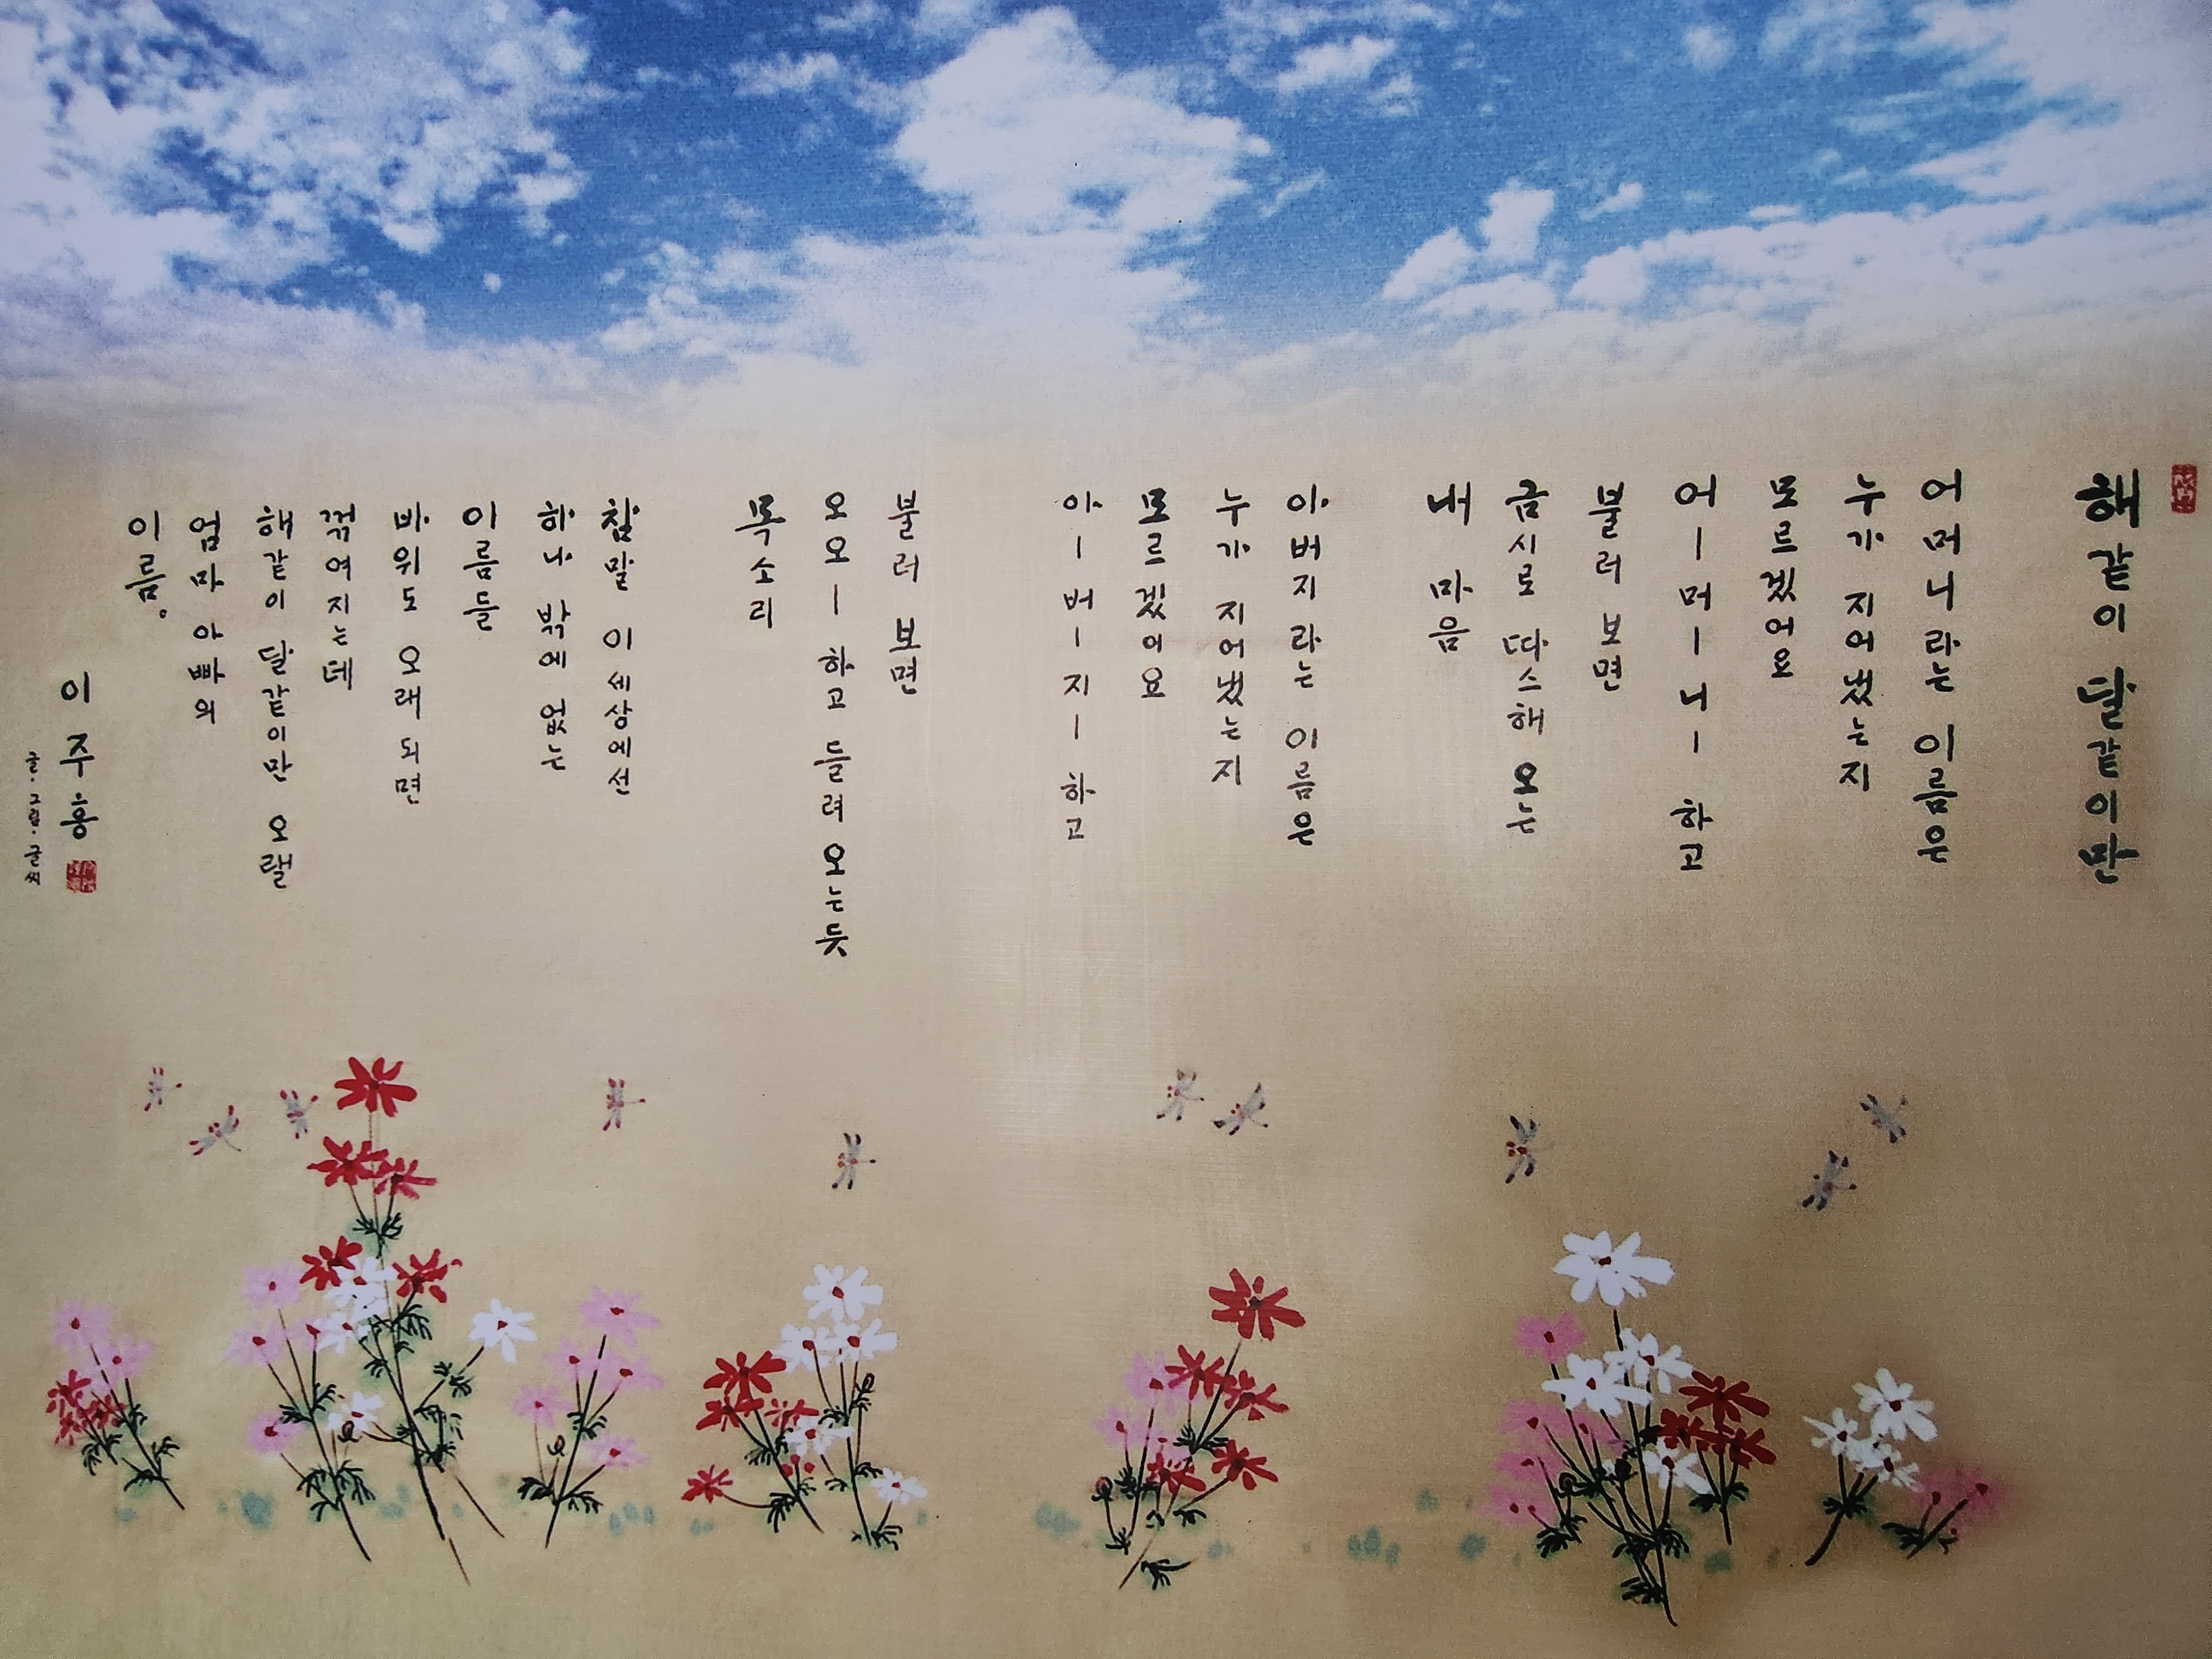 해같이 달같이만
어머니라는 이름은
누가 지어냈는지
모르겠어요
어ㅣ머ㅣ니ㅣ 하고
불러 보면
금시로 따스해 오는
내 마음
아버지라는 이름은
누가 지어냈는지
모르겠어요
아ㅣ버ㅣ지ㅣ 하고
불러 보면
오오ㅣ 하고 들려 오는듯
목소리
참말 이 세상에선
하나 밖에 없는
이름들
바위도 오래 되면
꺾여지는데
해같이 달같이만 오랠
엄마 아빠의
이름。
이주홍
글·그림·글씨